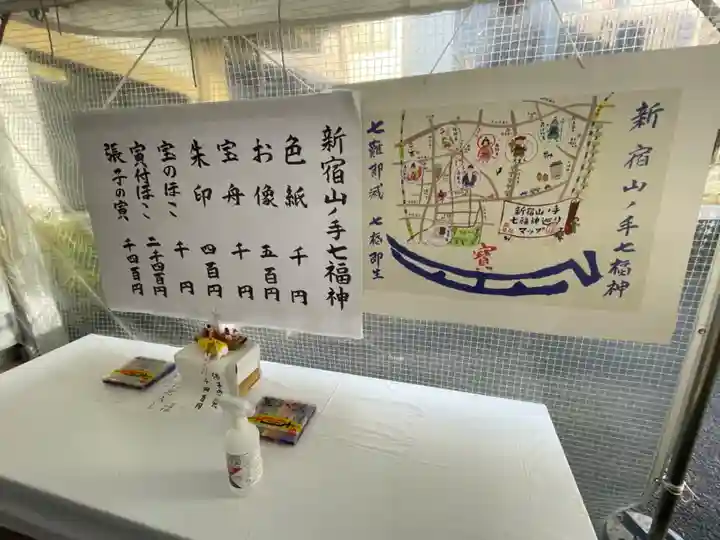 新宿山ノ手七福神
色紙 千円
お像 五百円
宝舟 千円
朱印 四百円
宝のほこ 千円
寅付ほこ 二千四百円
張子の寅 千四百円
新宿山ノ手七福神
新宿山ノ手
七福神巡り
マップ
寳
七難即滅 七福即生
張子の寅
千四百円